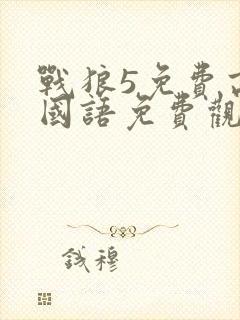 戰狼5免費
國語免費觀
錢穆